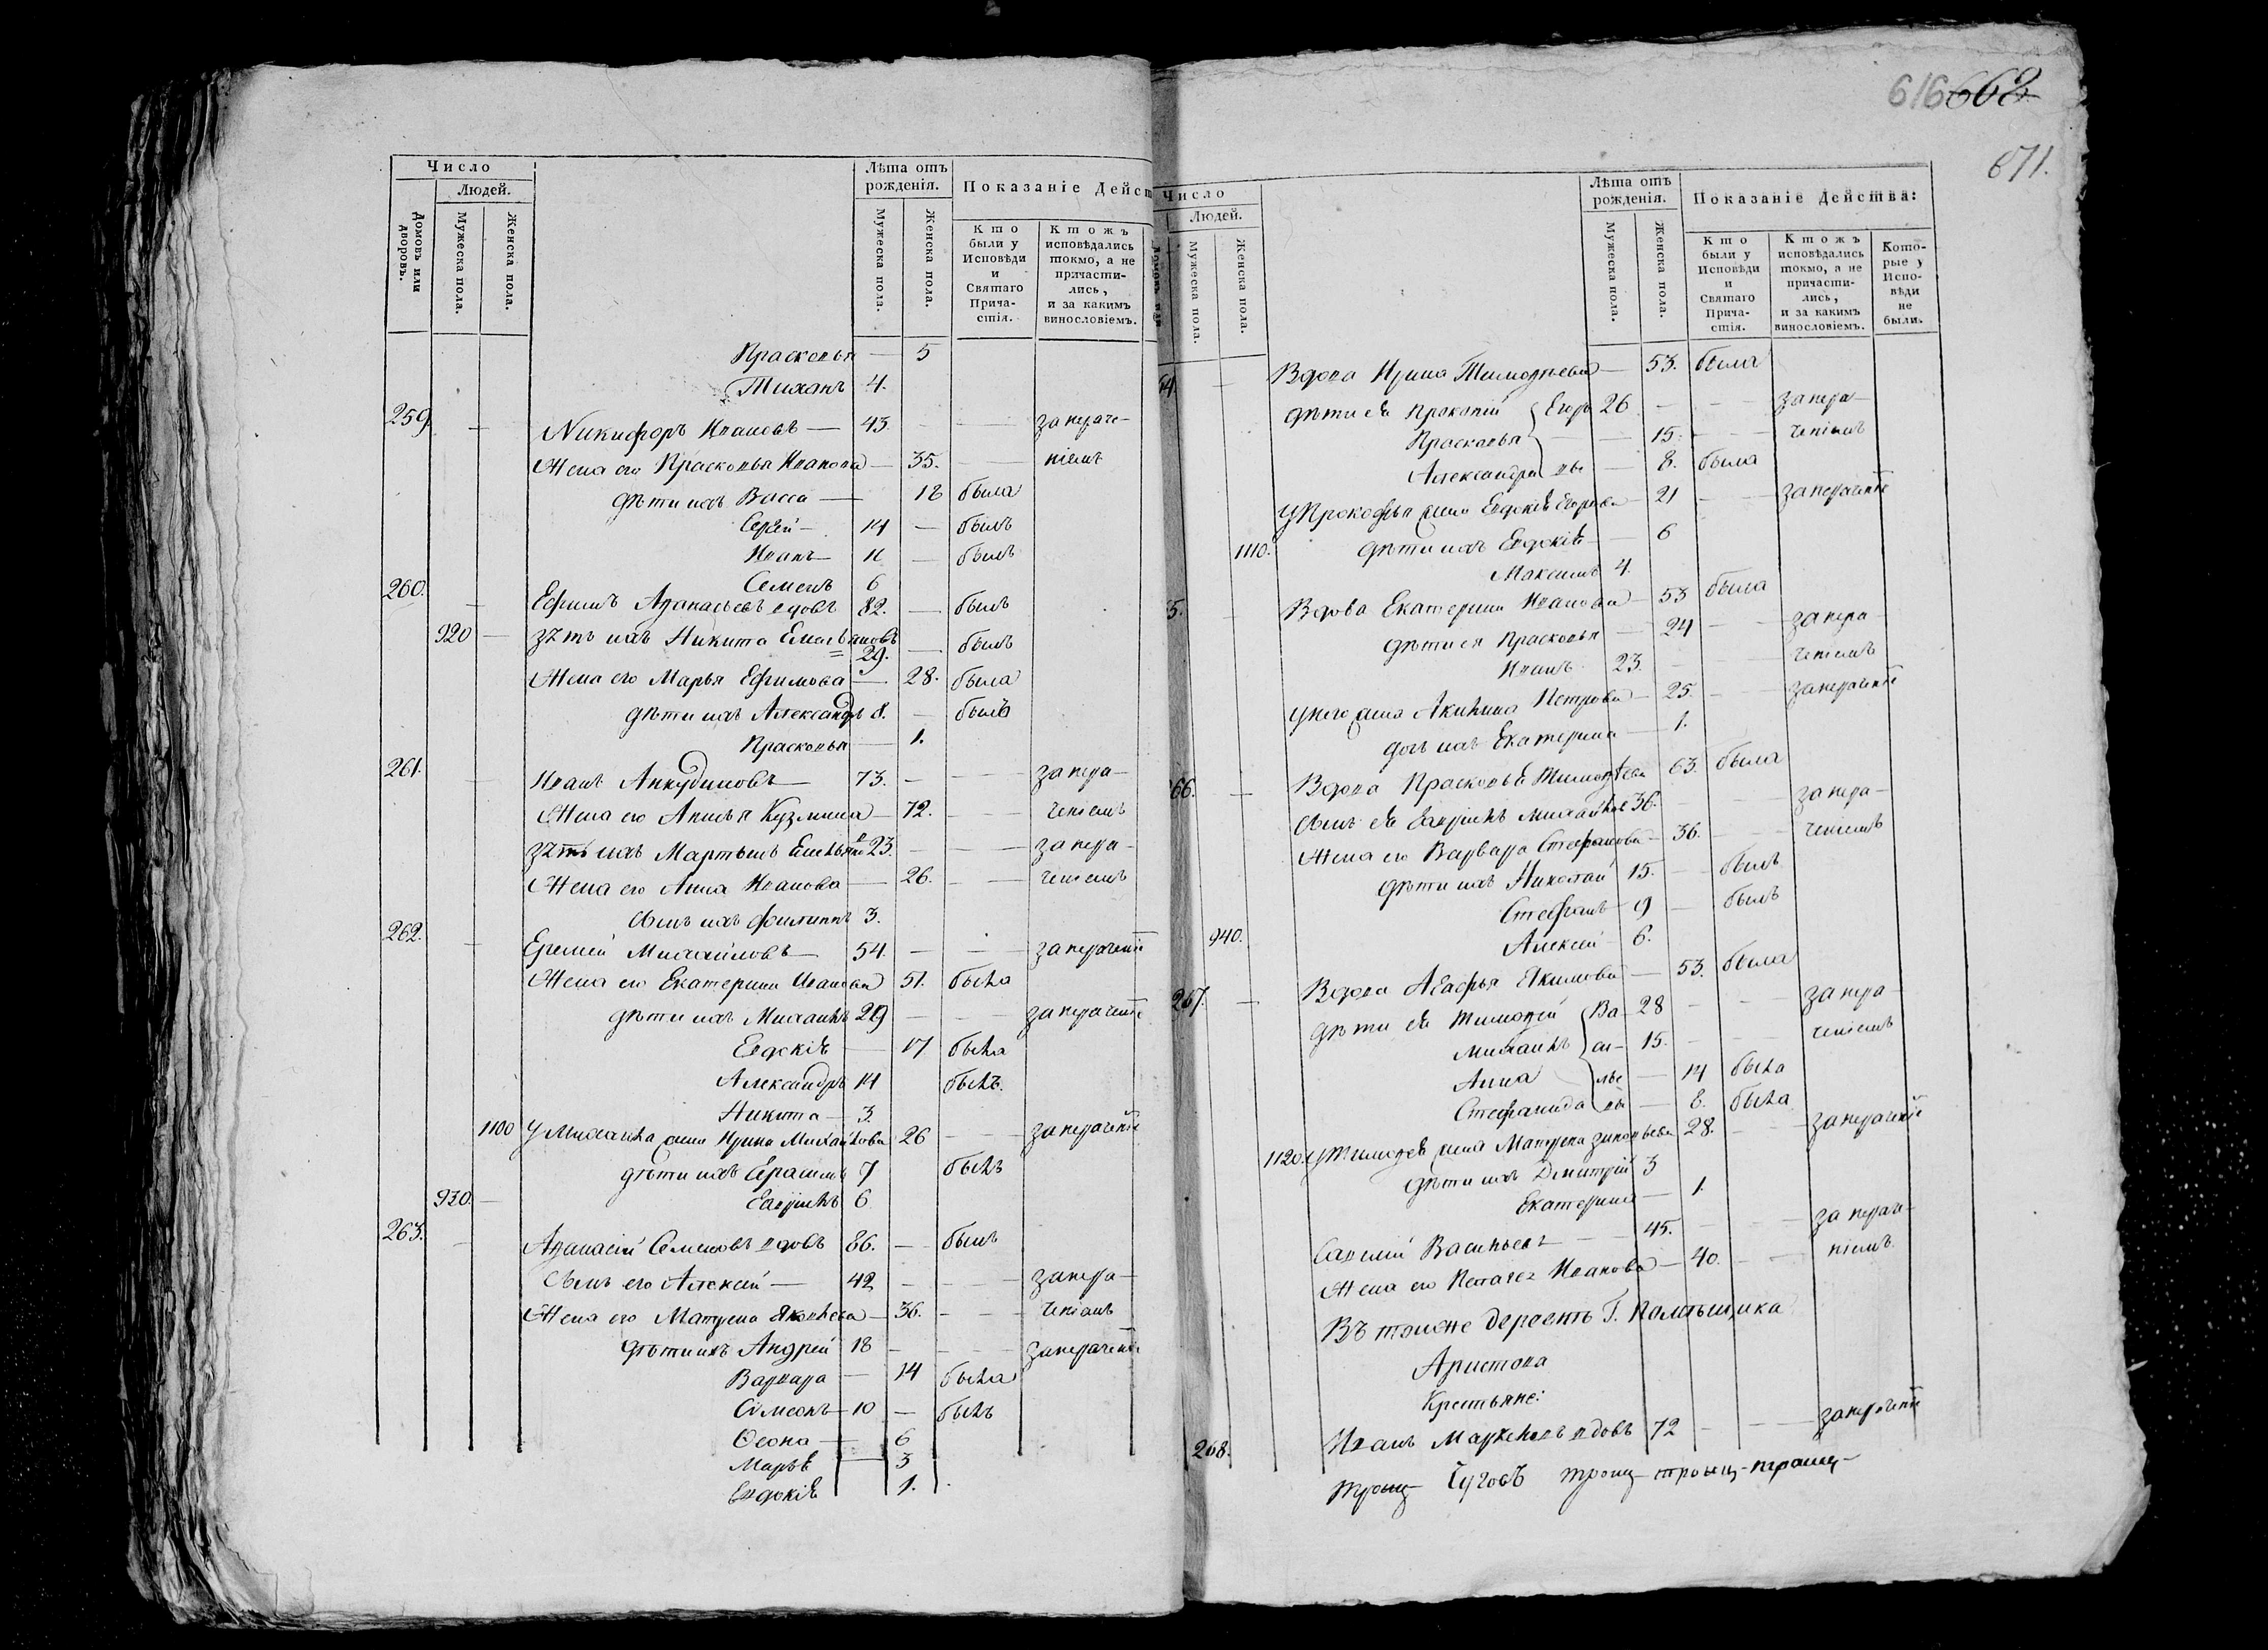 616 662
671.
Число
Людей.
Домовъ или дворовъ.
Мужеска пола.
Женска пола.
Лѣта отъ рожденія.
Мужеска пола.
Женска пола.
Показаніе Дейст
Кто были у Исповѣди и Святаго Прича-стія.
Ктожъ исповѣдались токмо, а не причасти-лись, и за какимъ винословіемъ.
Прасковья — 5
Тихонъ 4.
259. — Никифоръ Ивановъ — 43. — за нераче-
Жена его Прасковья Иванова — 35. — ніемъ
дѣти ихъ Васса — 18 была
Сергѣй — 14 — былъ
Иванъ — 11 — былъ
Семенъ 6
260. — Ефимъ Аѳанасьевъ вдовъ 82. — былъ
920 — зять ихъ Никита Емельяновъ 29. — былъ
Жена его Марья Ефимова — 28. была
дѣти ихъ Александръ 8. — былъ
Прасковья — 1.
261. — Иванъ Анкудиновъ — 73. — — за нера-
Жена его Анисья Кузмина — 72. — ченіемъ
зять ихъ Мартынъ 23. — — за нера-
Жена его Анна Иванова — 26. — ченіемъ
сынъ ихъ Филиппъ 3.
262. — Еремѣй Михайловъ — 54. — — за нераченіе
Жена его Екатерина Иванова 51. была
дѣти ихъ Михаилъ 29 — — за нераченіе
Евдокія — 17 была
Александръ 14 былъ.
Никита — 3
1100 У Михаила жена Ирина Михайлова 26 — за нераченіе
дѣти ихъ Герасимъ 7 былъ
930. — Гаврилъ 6
263. — Аѳанасій Семеновъ вдовъ 86. — былъ
Сынъ его Алексѣй — 42 — — за нера-
Жена его Матрена Яковлева — 36. — ченіемъ
дѣти ихъ Андрей 18 — — за нераченіе
Варвара — 14 была
Симеонъ — 10 — былъ
Ѳеона — 6
Марья — 3
Евдокія 1.
Число
Людей.
Мужеска пола.
Женска пола.
Лѣта отъ рожденія.
Мужеска пола.
Женска пола.
Показаніе Действа:
Кто были у Исповѣди и Святаго Прича-стія.
Ктожъ исповѣдались токмо, а не причасти-лись, и за какимъ винословіемъ.
Кото-рые у Испо-вѣди не были.
64. — Вдова Ирина Тимоѳеева — 53. была
дѣти ея Прокопій Егоръ 26 — — за нера-
Прасковья — 15. — ченіемъ
Александра вы — 8. была
У Прокофья жена Евдокія Егорова — 21 — за нераченіе
1110. дѣти ихъ Евдокія — 6
Максимъ 4.
65. — Вдова Екатерина Иванова — 53 была
дѣти ея Прасковья — 24 — за нера-
Иванъ 23. — ченіемъ
У него жена Акилина Петрова — 25. — за нераченіе
дочь ихъ Екатерина — 1.
66. — Вдова Прасковья Тимоѳеева 63. была
Сынъ ея Гаврилъ Михайлов 36. — за нера-
Жена его Варвара Стефанова — 36. — ченіемъ
дѣти ихъ Николай 15. — былъ
Стефанъ — 9 — былъ
940. Алексѣй 6.
267. — Вдова Агафья Якимова — 53. была
дѣти ея Тимоѳей Ва- 28 — — за нера-
Михаилъ си- 15. — ченіемъ
Анна лье — 14 была
Стефанида вы — 8. была
1120. У Тимоѳея жена Матрена Зиновьева 28. — за нераченіе
дѣти ихъ Дмитрій 3
Екатерина — 1.
Савелій Васильевъ — 45. — за нераче-
Жена его Пелагея Иванова — 40. — ніемъ
Въ тойже деревнѣ Г. Помѣщика
Аристова
Крестьяне:
268. Иванъ Маркеловъ вдовъ 72 — — за нераченіе